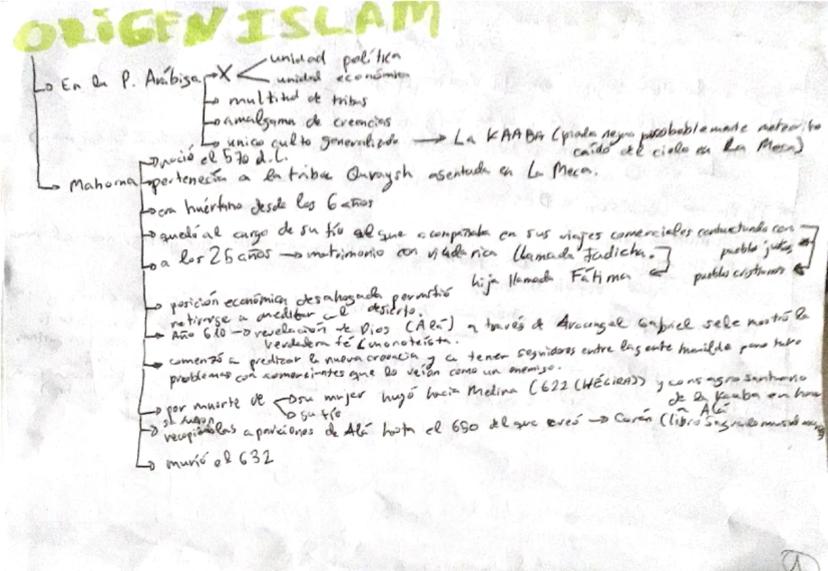 ORIGEN ISLAM
En la P. Arábiga → X < unidad política
unidad económica
multitud de tribus
amalgama de creencias
unico culto generalizado → La KAABA (piedra negra probablemente meteorito
caído del cielo en La Meca)
Mahoma → nació el 570 d.C.
pertenecía a la tribu Quraysh asentada en La Meca.
era huérfano desde los 6 años
quedó al cargo de su tío al que acompañaba en sus viajes comerciales contactando con
pueblo judío
a los 25 años → matrimonio con viuda rica llamada Jadicha.
pueblo cristiano
hija llamada Fátima
posición económica desahogada permitió
retirarse a meditar al desierto.
Año 610 → revelación de Dios (Alá) a través de Arcangel Gabriel se le mostró la
verdadera fé (monoteísta.
comenzó a predizar la nueva creencia y a tener seguidores entre la gente humilde pero tuvo
problemas con comerciantes que lo veían como un enemigo.
por muerte de su mujer huyó hacia Medina (622 (HÉGIRA)) y consagro santuario
su tío
de la Kaaba en honor
a Alá
recopiló las apariciones de Alá hasta el 650 el que creó → Corán (libro sagrado
murió el 632
1